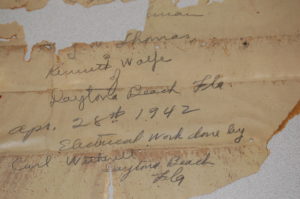 Thomas
Kenneth Wolfe
of
Daytona Beach Fla.
Apr. 28th 1942
Electrical Work done by
Carl
Daytona Beach
Fla